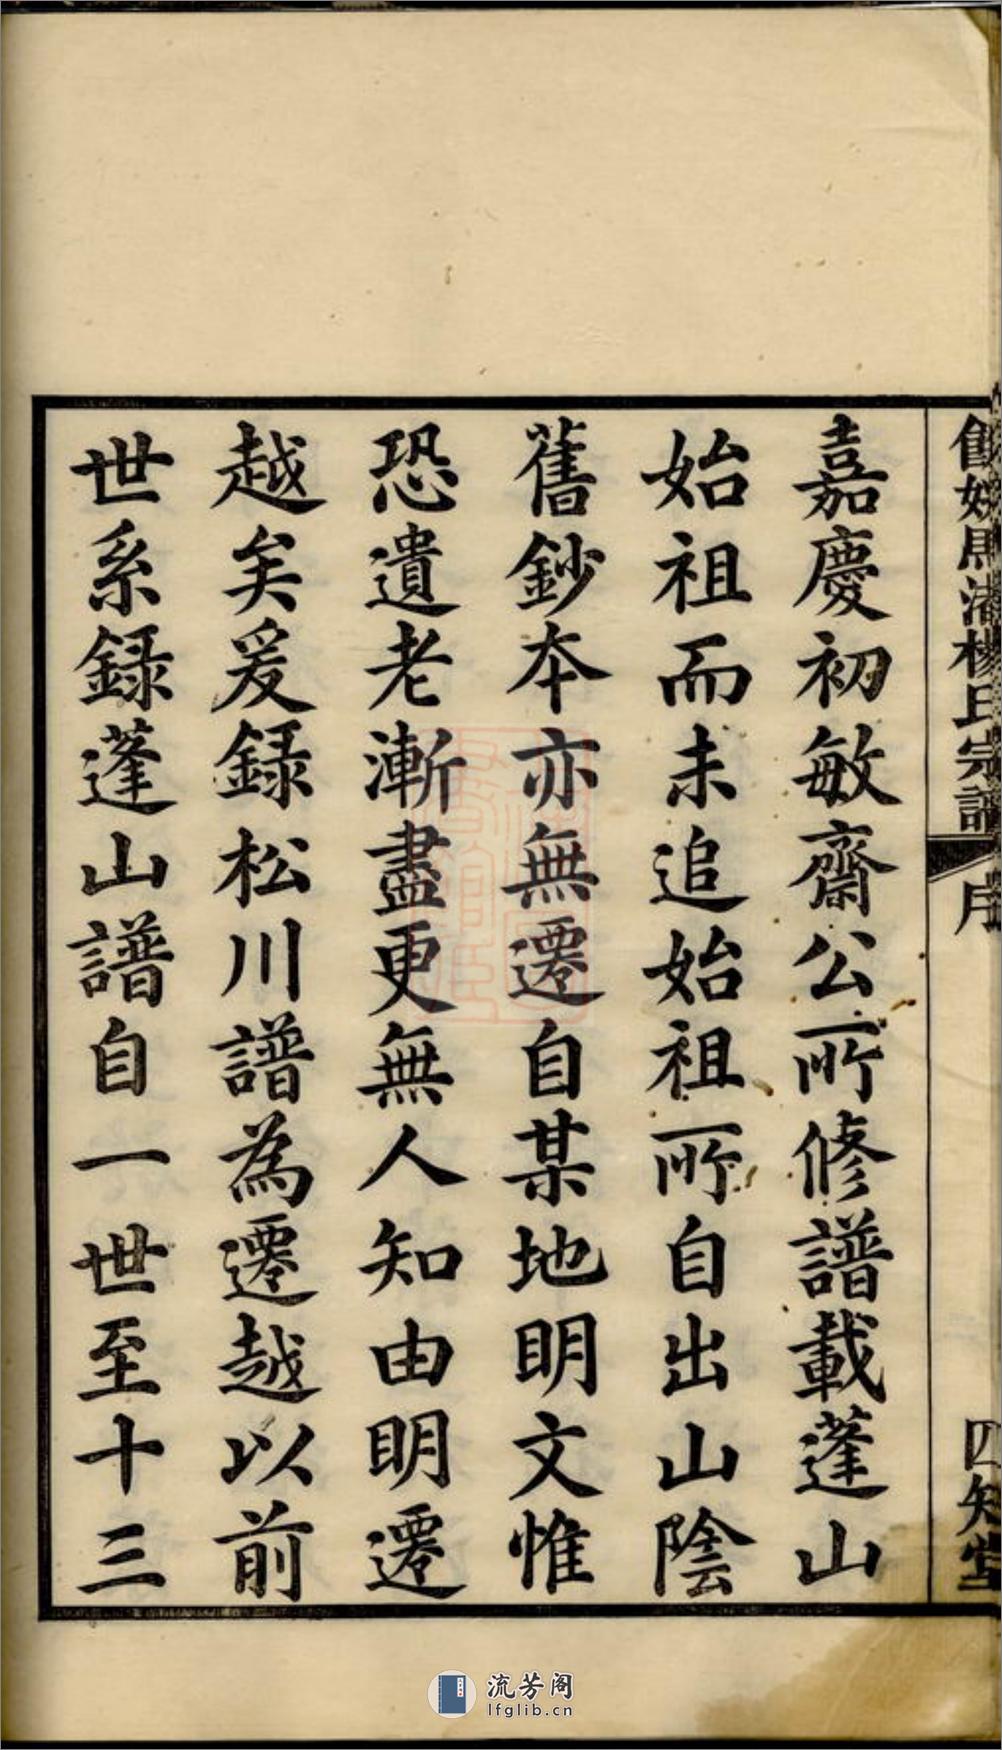 餘姚馬渚楊氏宗譜 序 四知堂
嘉慶初敏齋公所修譜載蓬山
始祖而未追始祖所自出山陰
舊鈔本亦無遷自某地明文惟
恐遺老漸盡更無人知由明遷
越矣爰録松川譜為遷越以前
世系録蓬山譜自一世至十三
流芳阁
lfglib.cn